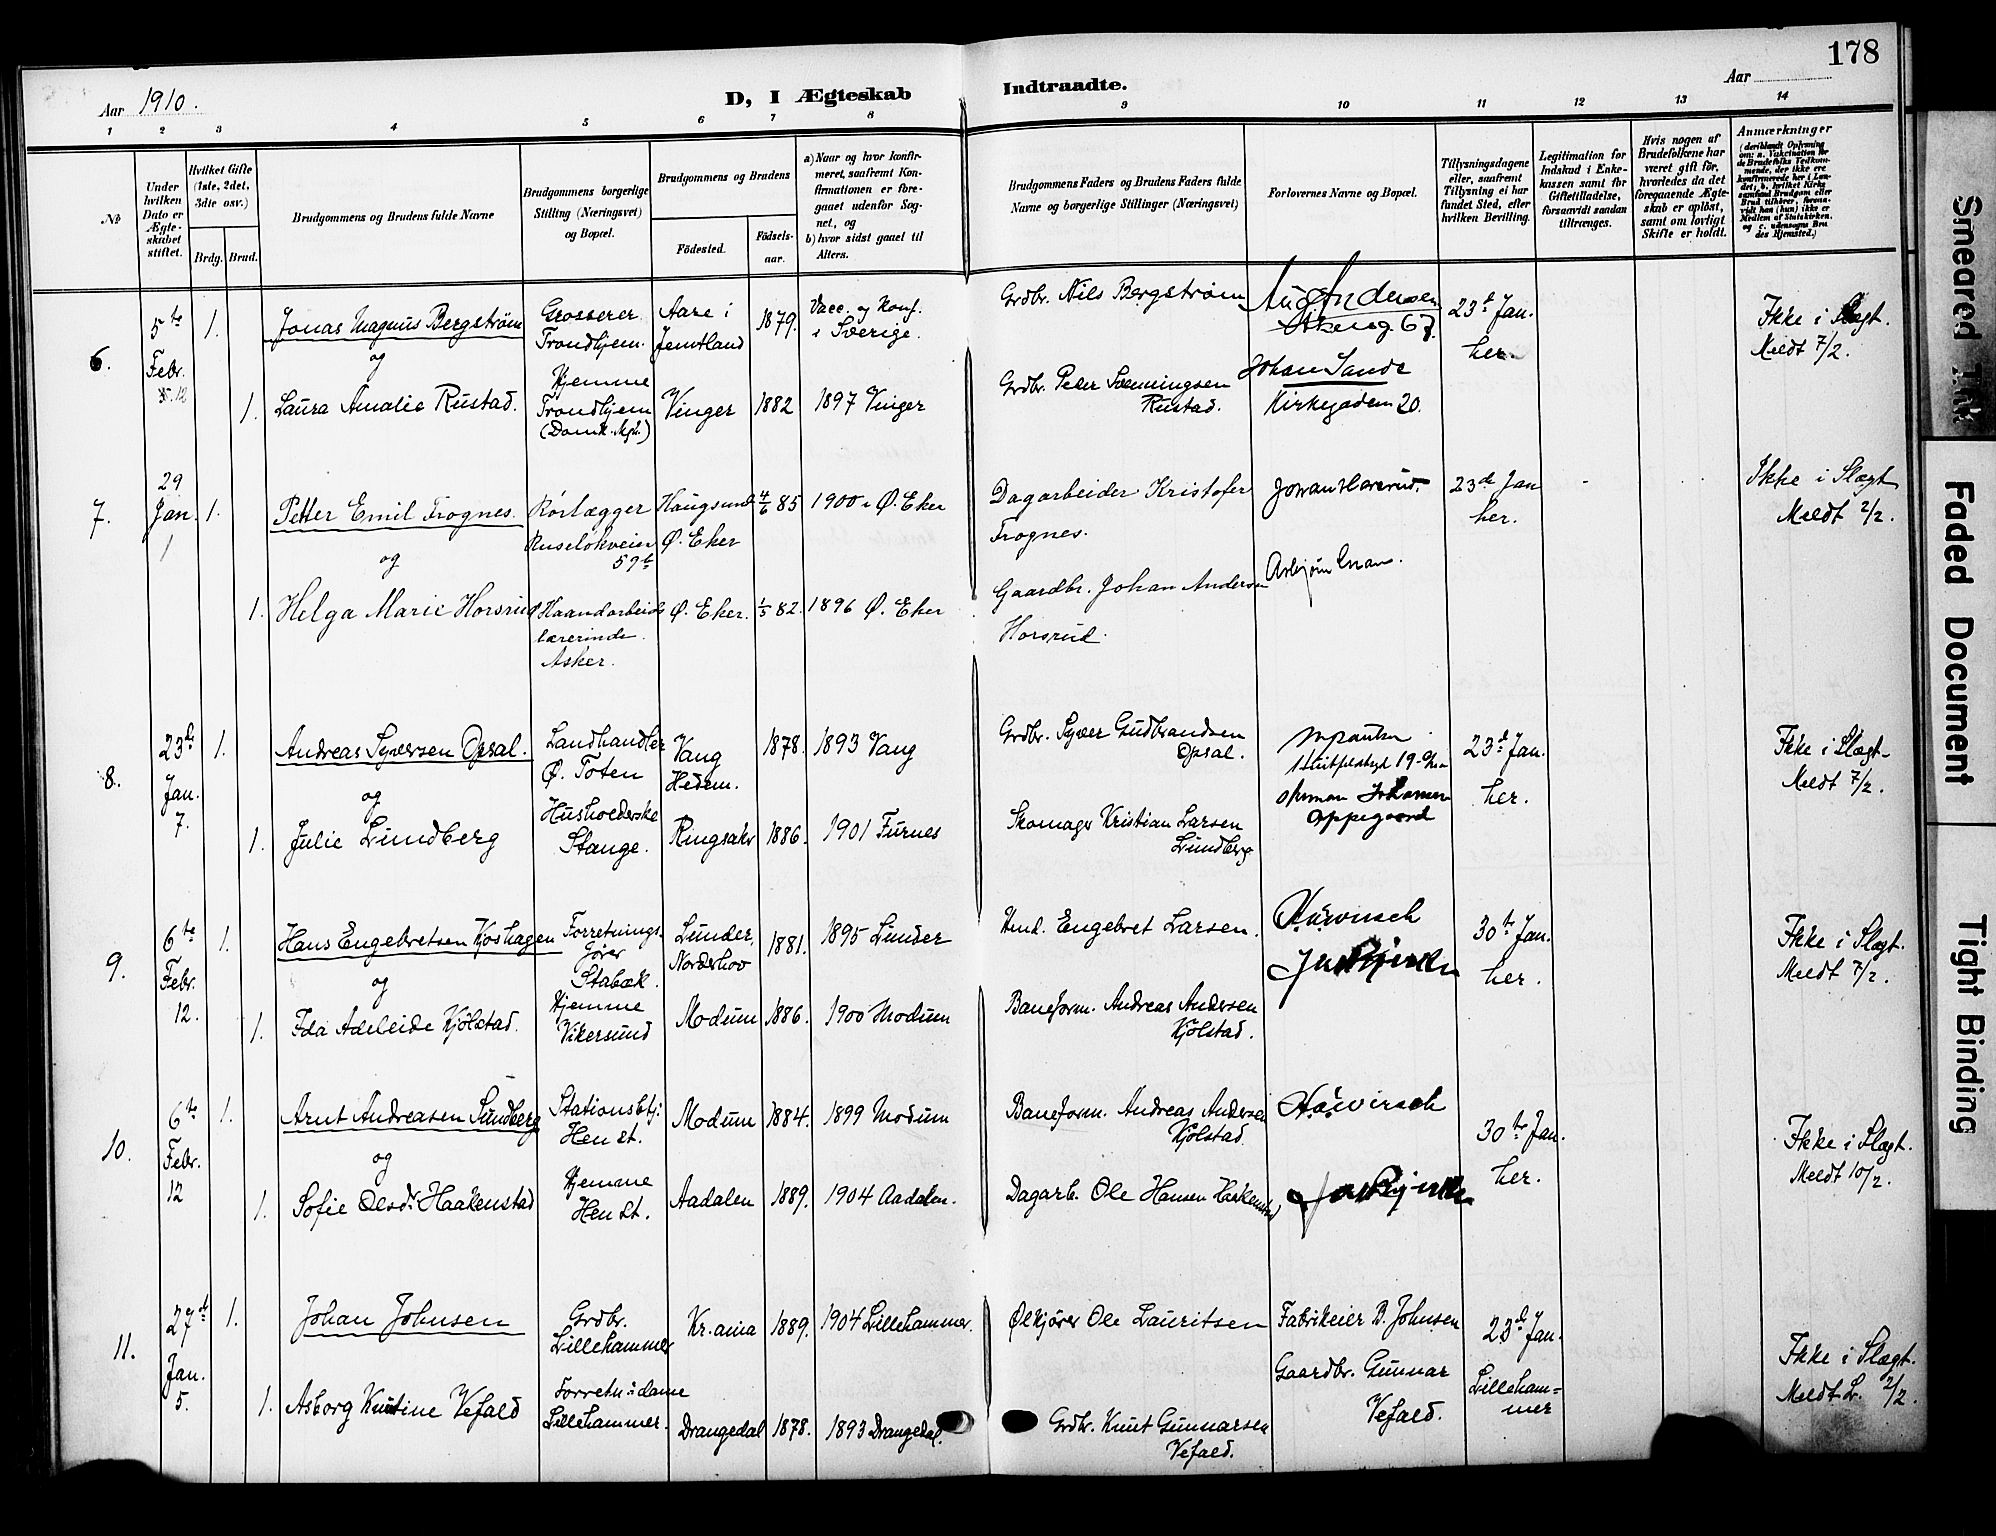 178
Aar 1910.
D, I Ægteskab Indtraadte.
Aar
1 2 3 4 5 6 7 8 9 10 11 12 13 14
№
Under hvilken Dato er Ægteskabet stiftet.
Hvilket Gifte (1ste, 2det, 3die osv.)
Brdg. Brud.
Brudgommens og Brudens fulde Navne
Brudgommens borgerlige Stilling (Næringsvei) og Bopæl.
Brudgommens og Brudens
Födested.
Födselsaar.
a) Naar og hvor konfirmeret, saafremt Konfirmationen er foregaaet udenfor Sognet, og
b) hvor sidst gaaet til Alters.
Brudgommens Faders og Brudens Faders fulde Navne og borgerlige Stillinger (Næringsvei)
Forlovernes Navne og Bopæl.
Tillysningsdagene eller, saafremt Tillysning ei har fundet Sted, efter hvilken Bevilling.
Legitimation for Indskud i Enkekassen samt for Giftetilladelse, forsaavidt saadan tiltrænges.
Hvis nogen af Brudefolkene har været gift för, hvorledes da det foregaaende Ægteskab er oplöst, samt om lovligt Skifte er holdt.
Anmærkninger
6.
5te Febr.
1.
Jonas Magnus Bergstrøm
og
Grosserer
Trondhjem.
Aare i
Jemtland
1879.
Vacc. og Konf.
i Sverige.
Grdbr. Nils Bergstrøm
Aug Andersen
67.
23d Jan.
her.
Ikke i Slægt.
Meldt 7/2.
1.
Laura Amalie Rustad.
Hjemme
Trondhjem
Vinger
1882
1897 Vinger
Grdbr. Peder Svenningsen
Rustad.
Johan Sande
Kirkegaden 20.
7.
29
Jan.
1
1.
Petter Emil Frognes.
og
Rørlægger
Ruseløkveien
59b
Haugsund
Ø. Eker
4/6 85
1900 i Ø. Eker
Dagarbeider Kristofer
Frognes.
23de Jan
her.
Ikke i Slægt
Meldt 2/2.
1.
Helga Marie Horsrud
Haandarbeids
lærerinde.
Asker.
Ø. Eker.
1/5 82.
1896 Ø. Eker
Gaardbr. Johan Andersen
Horsrud.
8.
23de
Jan.
7.
1.
Andreas Syversen Opsal.
og
Landhandler
Ø. Toten
Vang
Hedem.
1878.
1893 Vang
Grdbr. Syver Gudbrandsen
Opsal.
23d Jan.
her.
Ikke i Slægt.
Meldt 7/2.
1.
Julie Lundberg
Husholderske
Stange.
Ringsaker
1886.
1901 Furnes
Skomager Kristian Larsen
Lundberg
Oppegaard
9.
6te
Febr.
12.
1.
Hans Engebretsen Kjoshagen
og
Forretnings-
fører
Stabæk.
Lunder,
Norderhov
1881.
1895 Lunder
Hmd. Engebret Larsen.
30te Jan.
her.
Ikke i Slægt.
Meldt 7/2.
1.
Ida Adeleide Kjölstad.
Hjemme
Vikersund
Modum
1886.
1900 Modum
Baneform. Andreas Andersen
Kjölstad.
10.
6te
Febr.
12
1.
Arnt Andreasen Sundberg
og
Stationsbtj:
Hen st.
Modum
1884.
1899 Modum
Baneform. Andreas Andersen
Kjölstad
30te Jan.
her.
Ikke i Slægt.
Meldt 10/2.
1.
Sofie Olsdr. Haakenstad
Hjemme
Hen st.
Aadalen
1889.
1904 Aadalen.
Dagarb. Ole Hansen Haakenstad
11.
27de
Jan.
5.
1.
Johan Johnsen
Grdbr.
Lillehammer
Kr.ania
1889.
1904 Lillehammer.
Ølkjører Ole Lauritsen
Fabrikeier B. Johnsen
23de Jan.
Lilleham=
mer
Ikke i Slægt.
Meldt L. 2/2.
1.
Asborg Knutine Vefald
Forretn:dame
Lillehammer.
Drangedal
1878.
1893 Drangedal.
Grdbr. Knut Gunnarsen
Vefald.
Gaardbr. Gunnar
Vefald.
Smeared Ink
Faded Document
Tight Binding